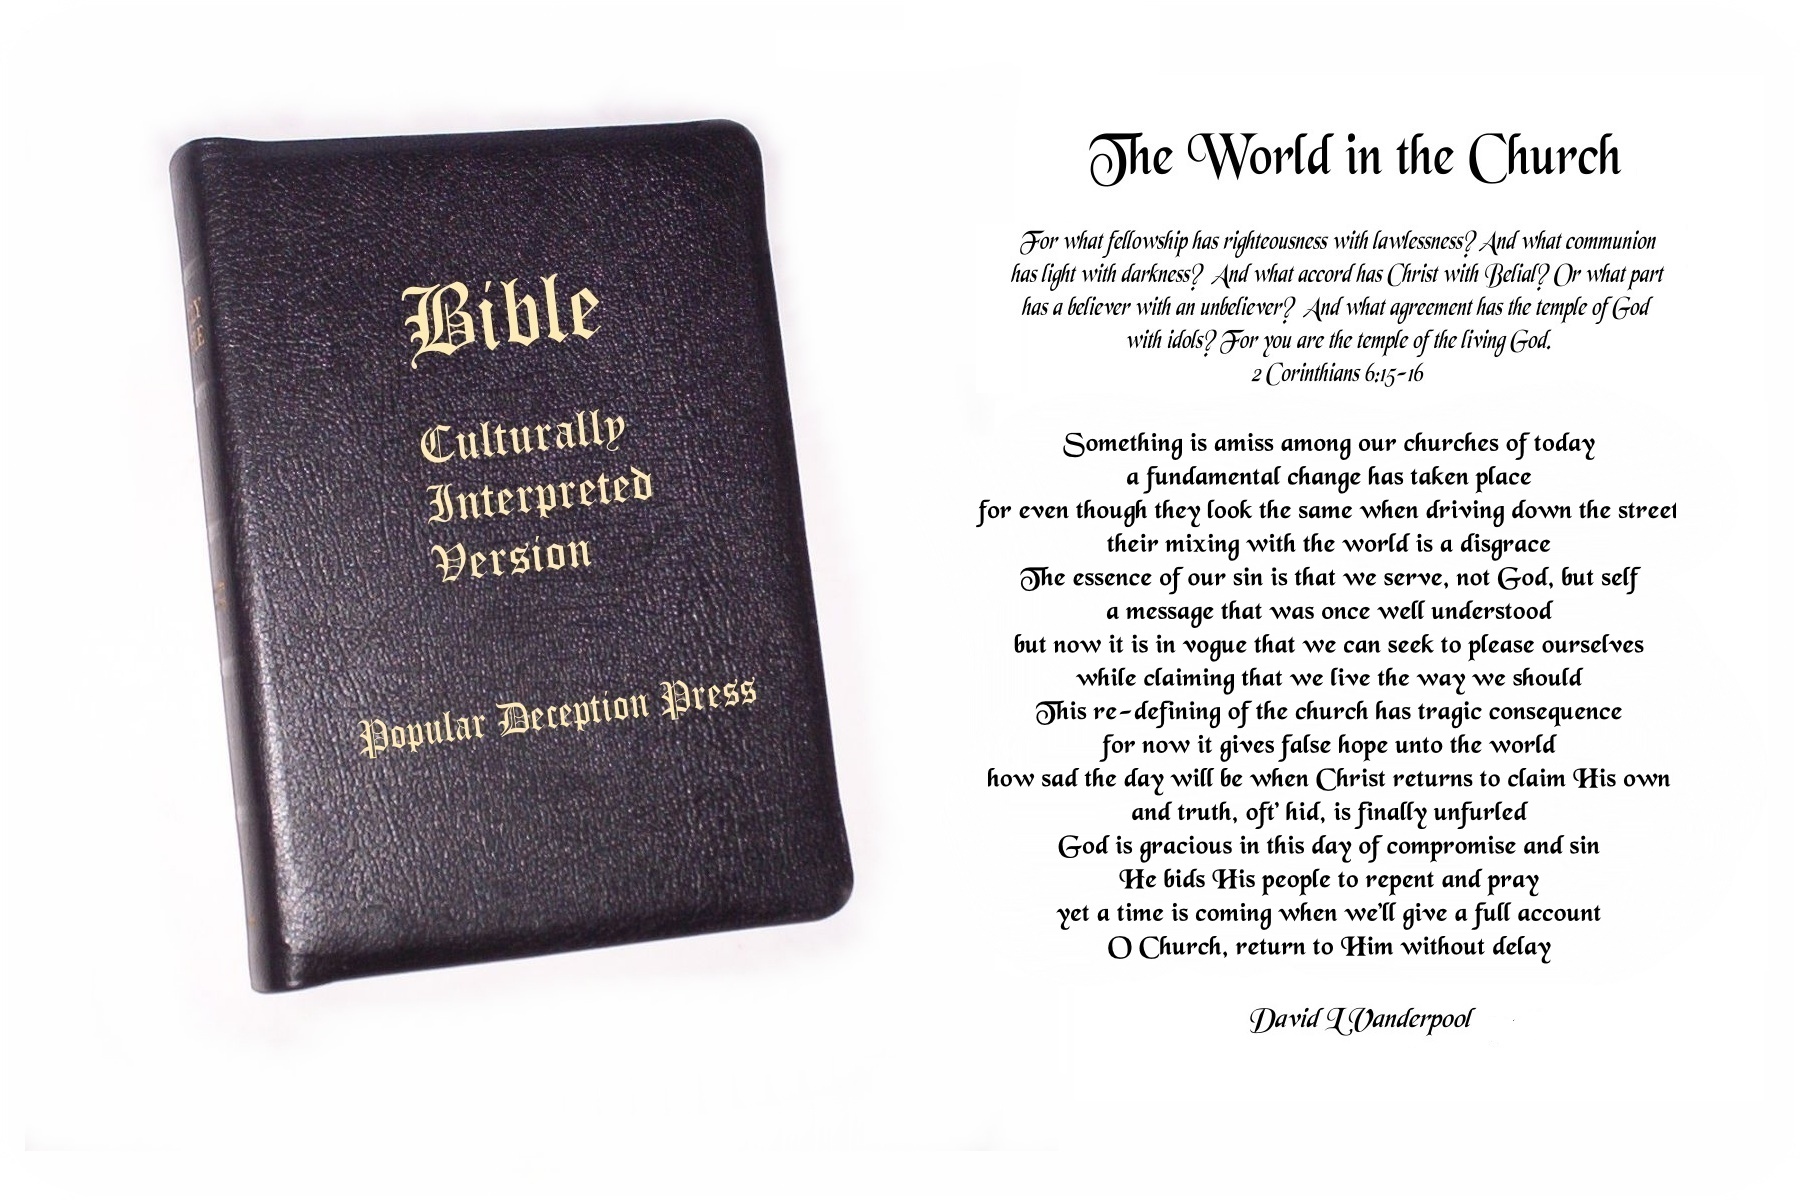 Bible
Culturally
Interpreted
Version
Popular Deception Press
The World in the Church
For what fellowship has righteousness with lawlessness? And what communion
has light with darkness? And what accord has Christ with Belial? Or what part
has a believer with an unbeliever? And what agreement has the temple of God
with idols? For you are the temple of the living God.
2 Corinthians 6:15-16
Something is amiss among our churches of today
a fundamental change has taken place
for even though they look the same when driving down the street
their mixing with the world is a disgrace
The essence of our sin is that we serve, not God, but self
a message that was once well understood
but now it is in vogue that we can seek to please ourselves
while claiming that we live the way we should
This re-defining of the church has tragic consequence
for now it gives false hope unto the world
how sad the day will be when Christ returns to claim His own
and truth, oft' hid, is finally unfurled
God is gracious in this day of compromise and sin
He bids His people to repent and pray
yet a time is coming when we'll give a full account
O Church, return to Him without delay
David L Vanderpool